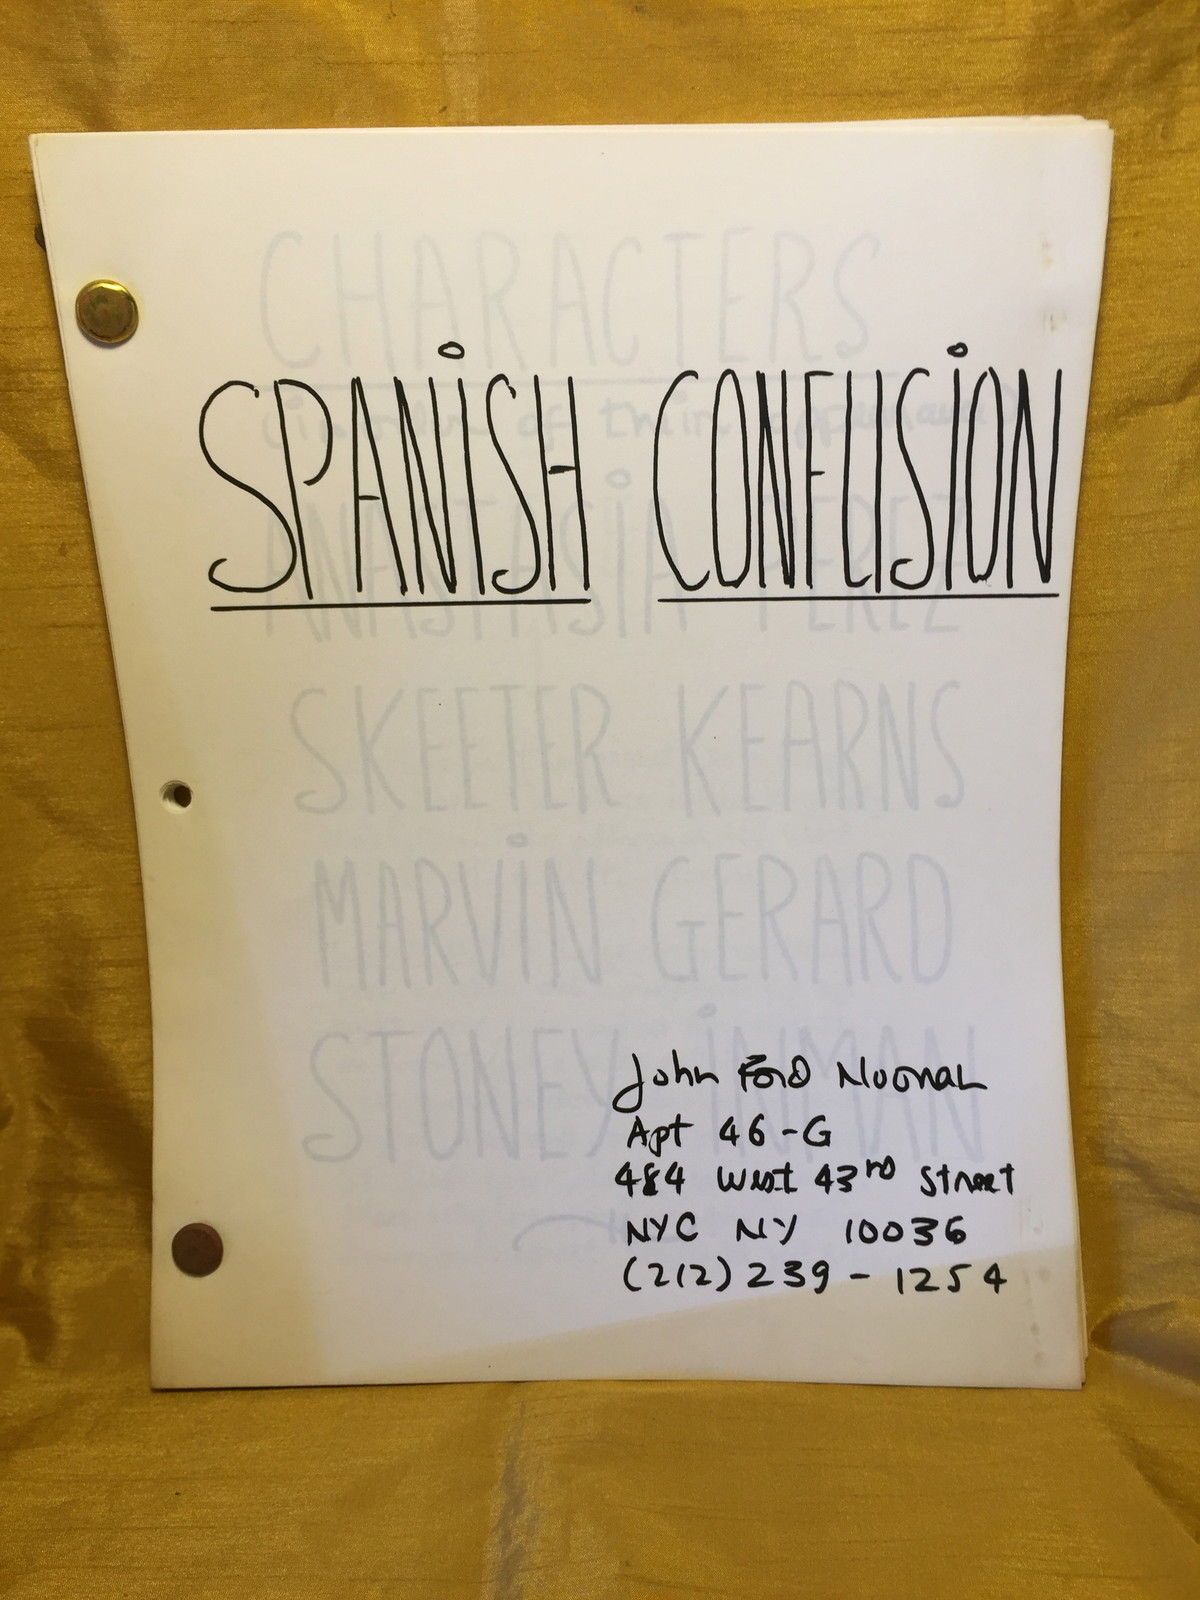 CHARACTERS
SPANiSH CONFUSiON
(in order of their appearance)
ANASTASiA PEREZ
SKEETER KEARNS
MARViN GERARD
STONEY iNMAN
John Ford Noonan
Apt 46-G
484 West 43rd Street
NYC NY 10036
(212) 239-1254